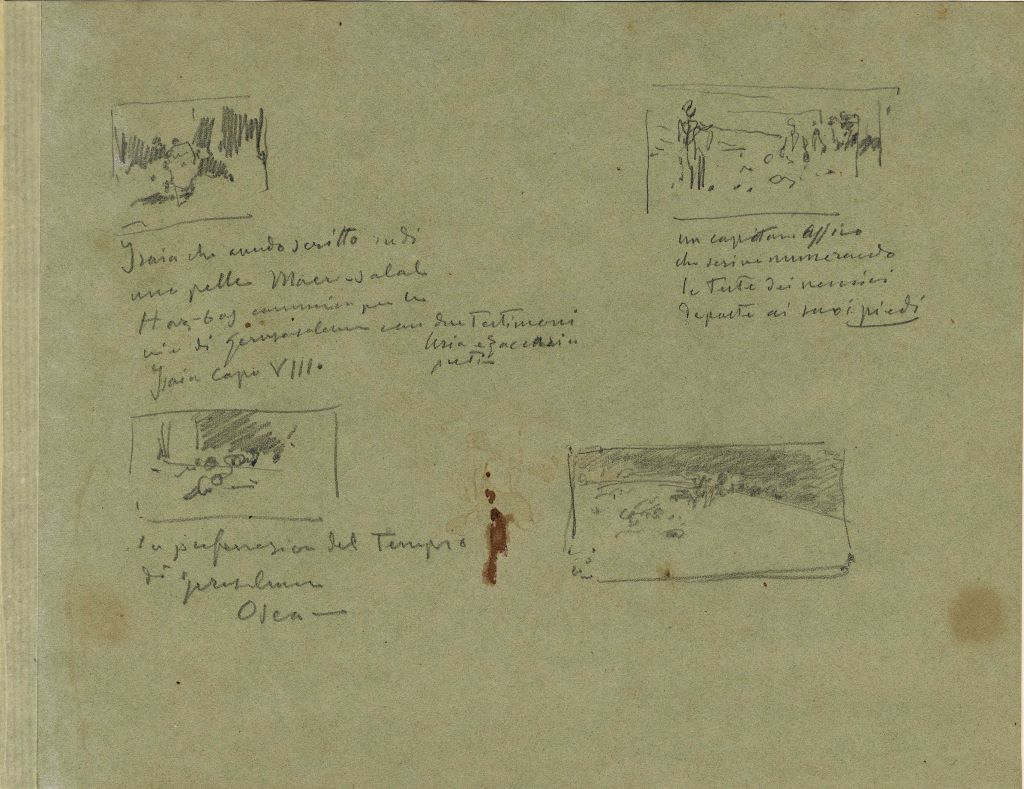 Isaia che avendo scritto sudi
una pelle Maer-salal
Has-bas cammina per le
vie di Gerusalemme con due testimoni
Uria e Zaccaria
Isaia capo VIII.
un capitano Assiro
che scrive numerando
le teste dei nemici
deposte ai suoi piedi
la profanazion del Tempio
di Gerusalemme
Osea